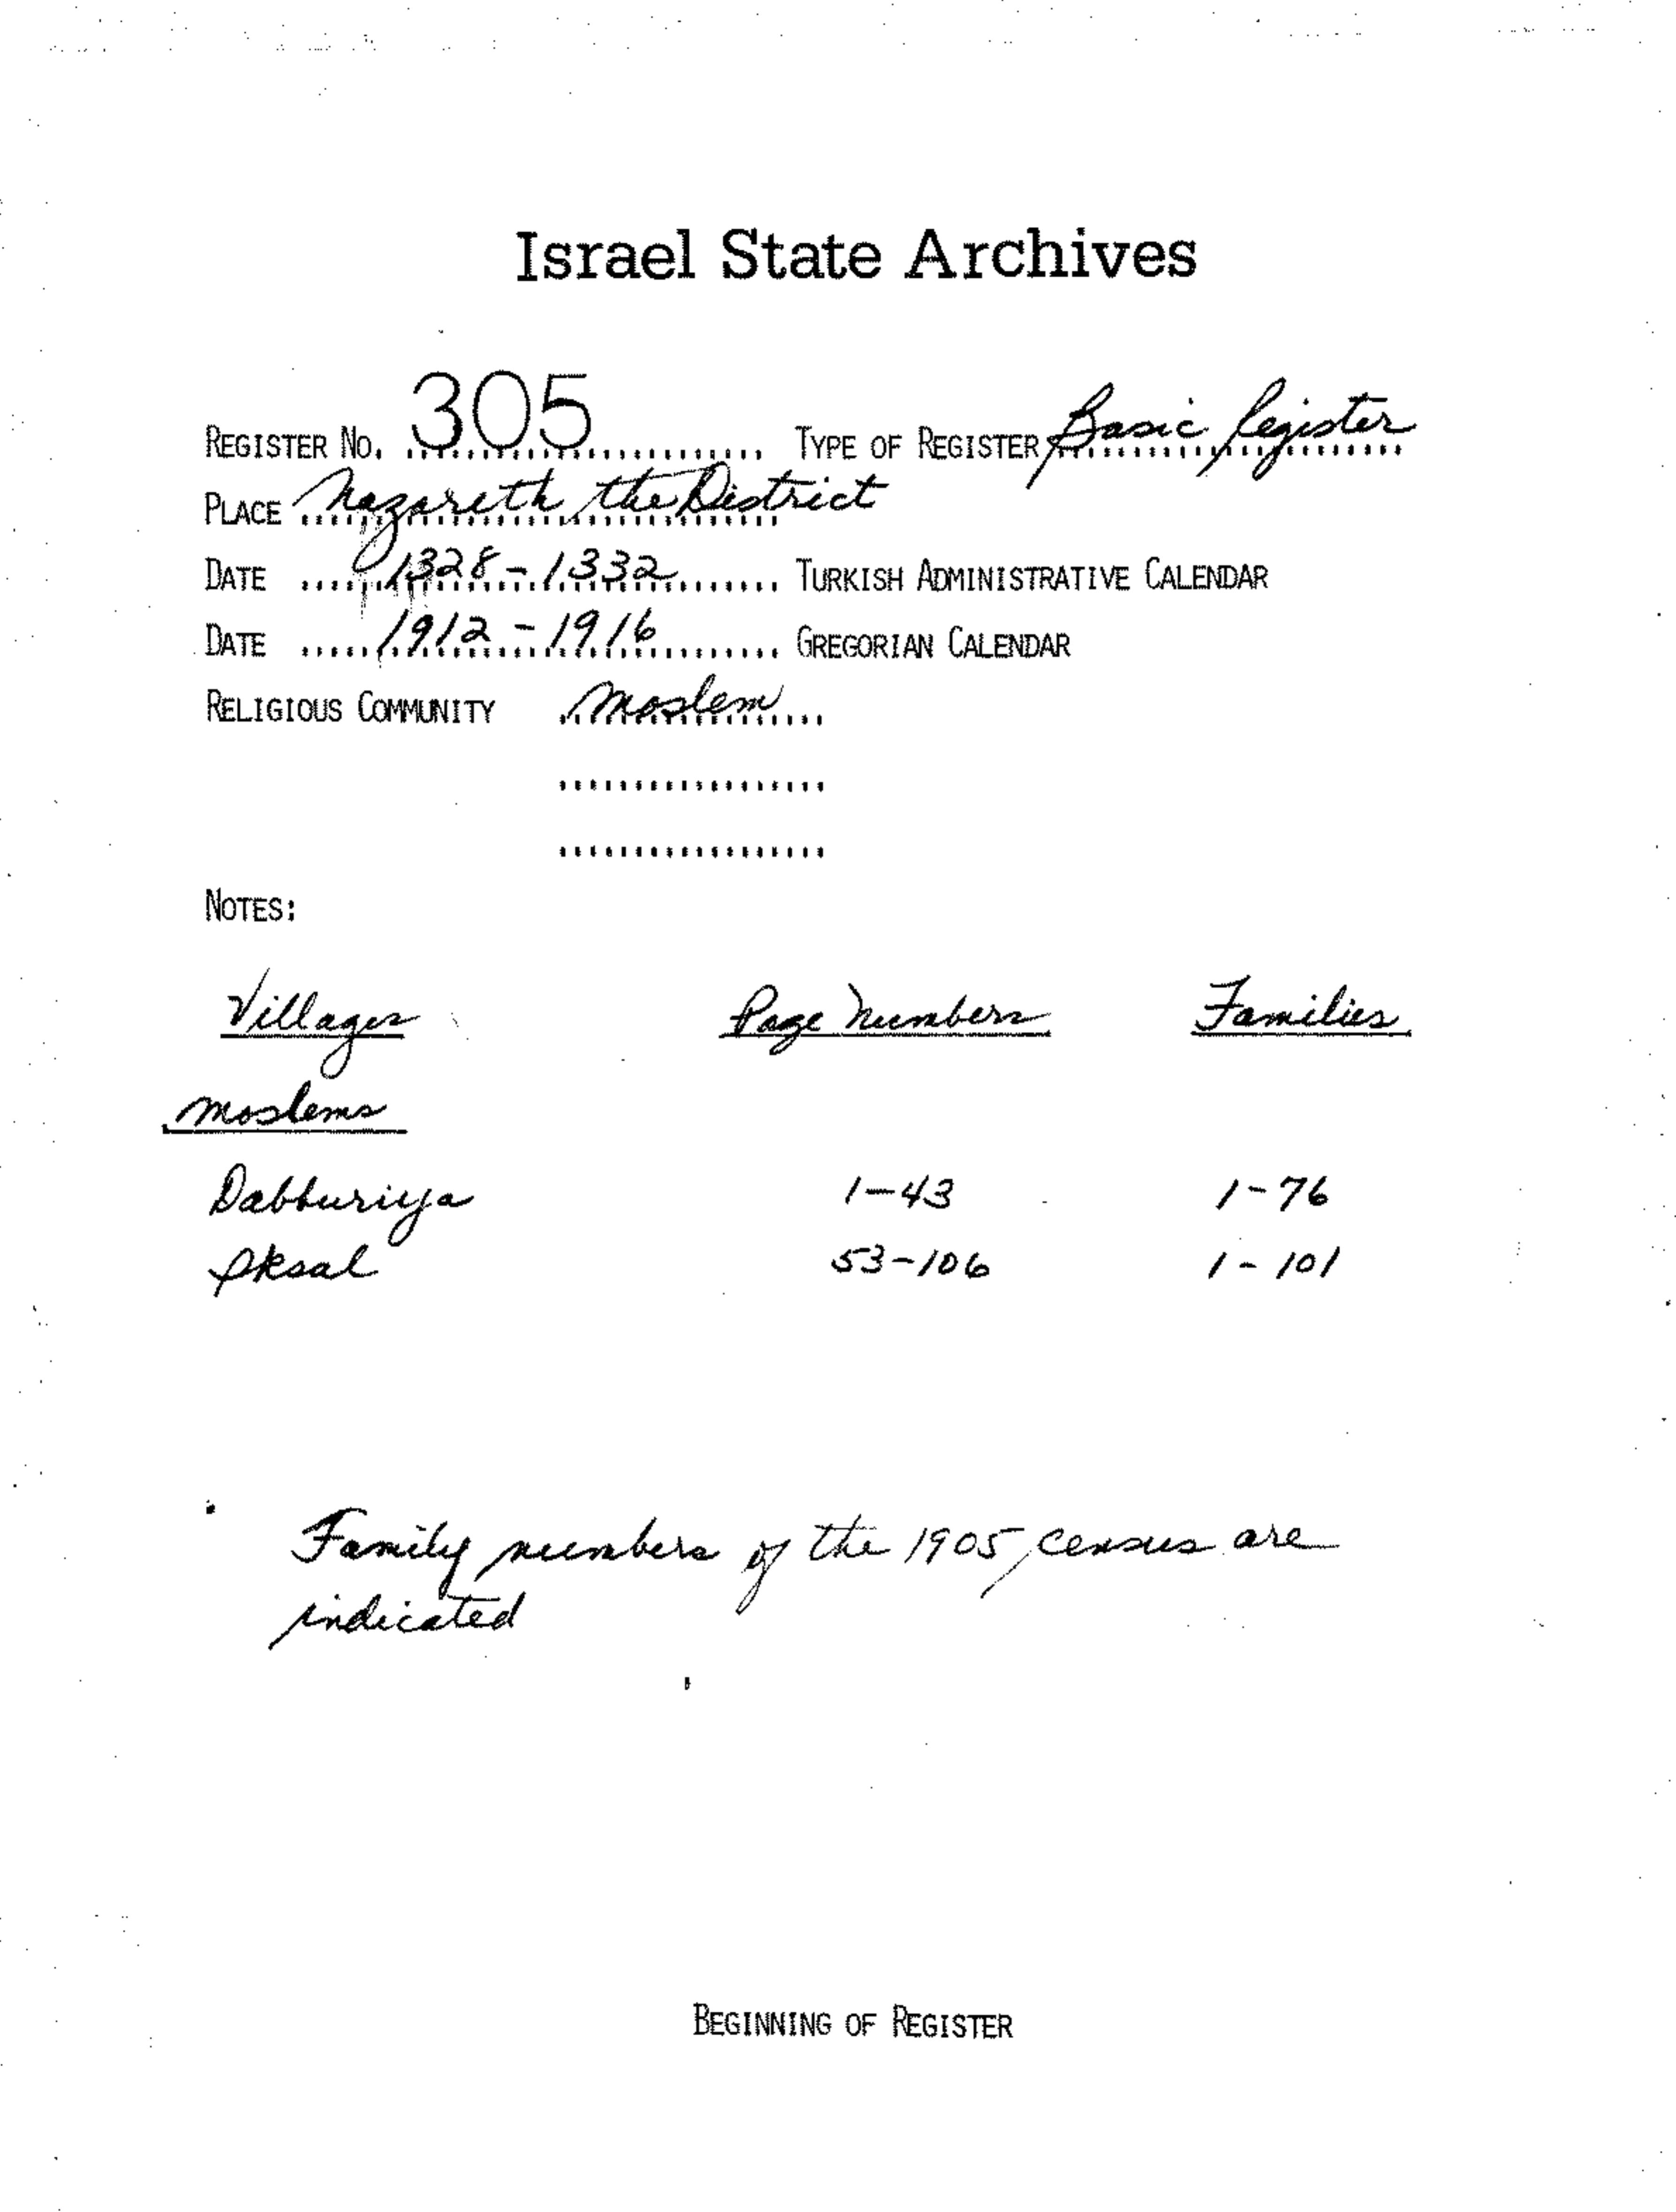 Israel State Archives
REGISTER NO. 305 TYPE OF REGISTER Basic Register
PLACE Nazareth, the District
DATE 1328-1332 TURKISH ADMINISTRATIVE CALENDAR
DATE 1912-1916 GREGORIAN CALENDAR
RELIGIOUS COMMUNITY Moslem
NOTES:
Villages Page Numbers Families
Moslems
Dabburiya 1-43 1-76
Iksal 53-106 1-101
Family numbers of the 1905 census are
indicated
BEGINNING OF REGISTER